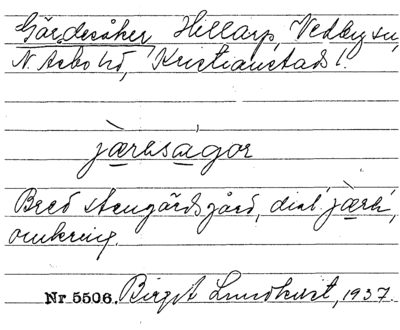 Gärdesåker, Hillarp, Vedby sn,
N. Åsbo hd, Kristianstads l.
jærksagor
Bred stengärdsgård, dial. jærk,
omkring.
Nr 5506. Birgit Lundkvist, 1937.